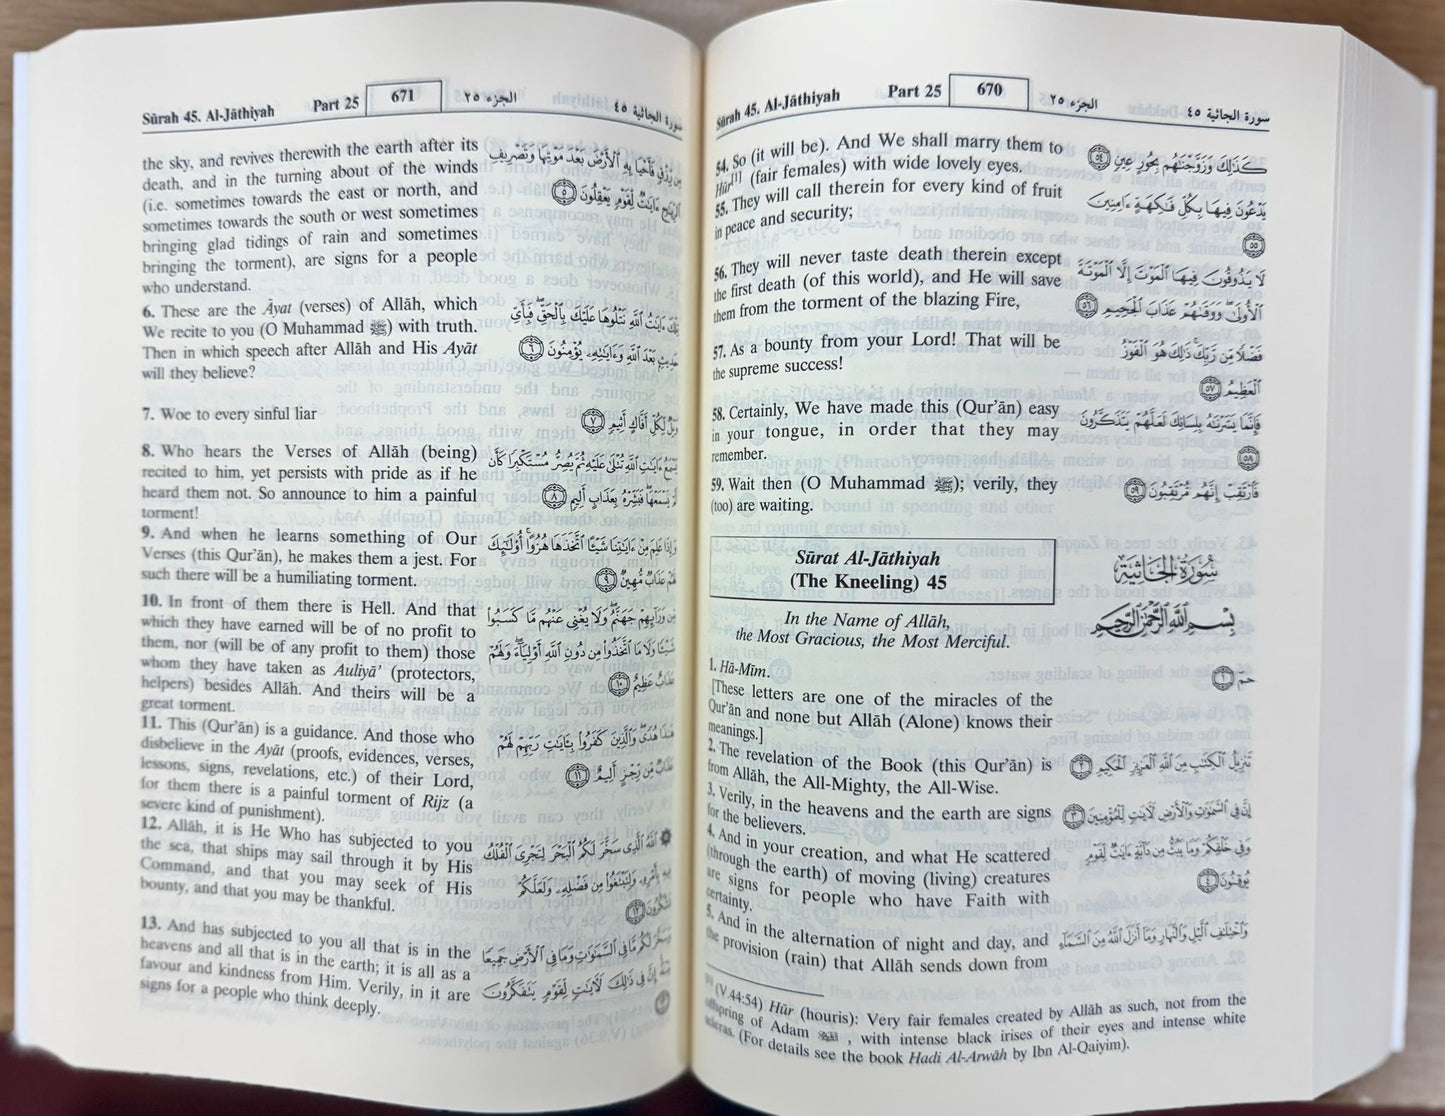 Sūrah 45. Al-Jāthiyah Part 25 670 الجزء ٢٥ سورة الجاثية ٤٥
54. So (it will be). And We shall marry them to
Hūr[1] (fair females) with wide lovely eyes.
55. They will call therein for every kind of fruit
in peace and security;
56. They will never taste death therein except
the first death (of this world), and He will save
them from the torment of the blazing Fire,
57. As a bounty from your Lord! That will be
the supreme success!
58. Certainly, We have made this (Qur'ān) easy
in your tongue, in order that they may
remember.
59. Wait then (O Muhammad ﷺ); verily, they
(too) are waiting.
Sūrat Al-Jāthiyah
(The Kneeling) 45
In the Name of Allāh,
the Most Gracious, the Most Merciful.
1. Hā-Mīm.
[These letters are one of the miracles of the
Qur'ān and none but Allāh (Alone) knows their
meanings.]
2. The revelation of the Book (this Qur'ān) is
from Allāh, the All-Mighty, the All-Wise.
3. Verily, in the heavens and the earth are signs
for the believers.
4. And in your creation, and what He scattered
(through the earth) of moving (living) creatures
are signs for people who have Faith with
certainty.
5. And in the alternation of night and day, and
the provision (rain) that Allāh sends down from
كَذَٰلِكَ وَزَوَّجْنَٰهُم بِحُورٍ عِينٍ ٥٤
يَدْعُونَ فِيهَا بِكُلِّ فَٰكِهَةٍ ءَامِنِينَ
٥٥
لَا يَذُوقُونَ فِيهَا الْمَوْتَ إِلَّا الْمَوْتَةَ
الْأُولَىٰ وَوَقَىٰهُمْ عَذَابَ الْجَحِيمِ ٥٦
فَضْلًا مِّن رَّبِّكَ ذَٰلِكَ هُوَ الْفَوْزُ
الْعَظِيمُ ٥٧
فَإِنَّمَا يَسَّرْنَٰهُ بِلِسَانِكَ لَعَلَّهُمْ يَتَذَكَّرُونَ
٥٨
فَارْتَقِبْ إِنَّهُم مُّرْتَقِبُونَ ٥٩
سُورَةُ الْجَاثِيَةِ
بِسْمِ اللَّهِ الرَّحْمَٰنِ الرَّحِيمِ
حمٓ ١
تَنزِيلُ الْكِتَٰبِ مِنَ اللَّهِ الْعَزِيزِ الْحَكِيمِ ٢
إِنَّ فِي السَّمَٰوَٰتِ وَالْأَرْضِ لَءَايَٰتٍ لِّلْمُؤْمِنِينَ ٣
وَفِي خَلْقِكُمْ وَمَا يَبُثُّ مِن دَابَّةٍ ءَايَٰتٌ لِّقَوْمٍ
يُوقِنُونَ ٤
وَاخْتِلَٰفِ الَّيْلِ وَالنَّهَارِ وَمَا أَنزَلَ اللَّهُ مِنَ السَّمَاءِ
[1] (V.44:54) Hūr (houris): Very fair females created by Allāh as such, not from the
offspring of Adam , with intense black irises of their eyes and intense white
scleras. (For details see the book Hadi Al-Arwāh by Ibn Al-Qaiyim).
Sūrah 45. Al-Jāthiyah Part 25 671 الجزء ٢٥ سورة الجاثية ٤٥
the sky, and revives therewith the earth after its
death, and in the turning about of the winds
(i.e. sometimes towards the east or north, and
sometimes towards the south or west sometimes
bringing glad tidings of rain and sometimes
bringing the torment), are signs for a people
who understand.
6. These are the Āyat (verses) of Allāh, which
We recite to you (O Muhammad ﷺ) with truth.
Then in which speech after Allāh and His Ayāt
will they believe?
7. Woe to every sinful liar
8. Who hears the Verses of Allāh (being)
recited to him, yet persists with pride as if he
heard them not. So announce to him a painful
torment!
9. And when he learns something of Our
Verses (this Qur'ān), he makes them a jest. For
such there will be a humiliating torment.
10. In front of them there is Hell. And that
which they have earned will be of no profit to
them, nor (will be of any profit to them) those
whom they have taken as Auliyā' (protectors,
helpers) besides Allāh. And theirs will be a
great torment.
11. This (Qur'ān) is a guidance. And those who
disbelieve in the Ayāt (proofs, evidences, verses,
lessons, signs, revelations, etc.) of their Lord,
for them there is a painful torment of Rijz (a
severe kind of punishment).
12. Allāh, it is He Who has subjected to you
the sea, that ships may sail through it by His
Command, and that you may seek of His
bounty, and that you may be thankful.
13. And has subjected to you all that is in the
heavens and all that is in the earth; it is all as a
favour and kindness from Him. Verily, in it are
signs for a people who think deeply.
مِن رِّزْقٍ فَأَحْيَا بِهِ الْأَرْضَ بَعْدَ مَوْتِهَا وَتَصْرِيفِ
الرِّيَٰحِ ءَايَٰتٌ لِّقَوْمٍ يَعْقِلُونَ ٥
تِلْكَ ءَايَٰتُ اللَّهِ نَتْلُوهَا عَلَيْكَ بِالْحَقِّ فَبِأَيِّ
حَدِيثٍ بَعْدَ اللَّهِ وَءَايَٰتِهِ يُؤْمِنُونَ ٦
وَيْلٌ لِّكُلِّ أَفَّاكٍ أَثِيمٍ ٧
يَسْمَعُ ءَايَٰتِ اللَّهِ تُتْلَىٰ عَلَيْهِ ثُمَّ يُصِرُّ مُسْتَكْبِرًا كَأَن
لَّمْ يَسْمَعْهَا فَبَشِّرْهُ بِعَذَابٍ أَلِيمٍ ٨
وَإِذَا عَلِمَ مِنْ ءَايَٰتِنَا شَيْـًٔا اتَّخَذَهَا هُزُوًا أُولَٰئِكَ
لَهُمْ عَذَابٌ مُّهِينٌ ٩
مِّن وَرَائِهِمْ جَهَنَّمُ وَلَا يُغْنِي عَنْهُم مَّا كَسَبُوا
شَيْـًٔا وَلَا مَا اتَّخَذُوا مِن دُونِ اللَّهِ أَوْلِيَاءَ وَلَهُمْ
عَذَابٌ عَظِيمٌ ١٠
هَٰذَا هُدًى وَالَّذِينَ كَفَرُوا بِـَٔايَٰتِ رَبِّهِمْ لَهُمْ
عَذَابٌ مِّن رِّجْزٍ أَلِيمٌ ١١
اللَّهُ الَّذِي سَخَّرَ لَكُمُ الْبَحْرَ لِتَجْرِيَ الْفُلْكُ
فِيهِ بِأَمْرِهِ وَلِتَبْتَغُوا مِن فَضْلِهِ وَلَعَلَّكُمْ
تَشْكُرُونَ ١٢
وَسَخَّرَ لَكُم مَّا فِي السَّمَٰوَٰتِ وَمَا فِي الْأَرْضِ جَمِيعًا
مِّنْهُ إِنَّ فِي ذَٰلِكَ لَءَايَٰتٍ لِّقَوْمٍ يَتَفَكَّرُونَ
١٣